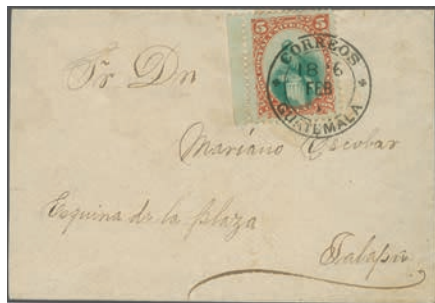 5 5
CORREOS
18 6
FEB
1
GUATEMALA
Sr Dn
Mariano Escobar
Esquina de la plaza
Jalapa